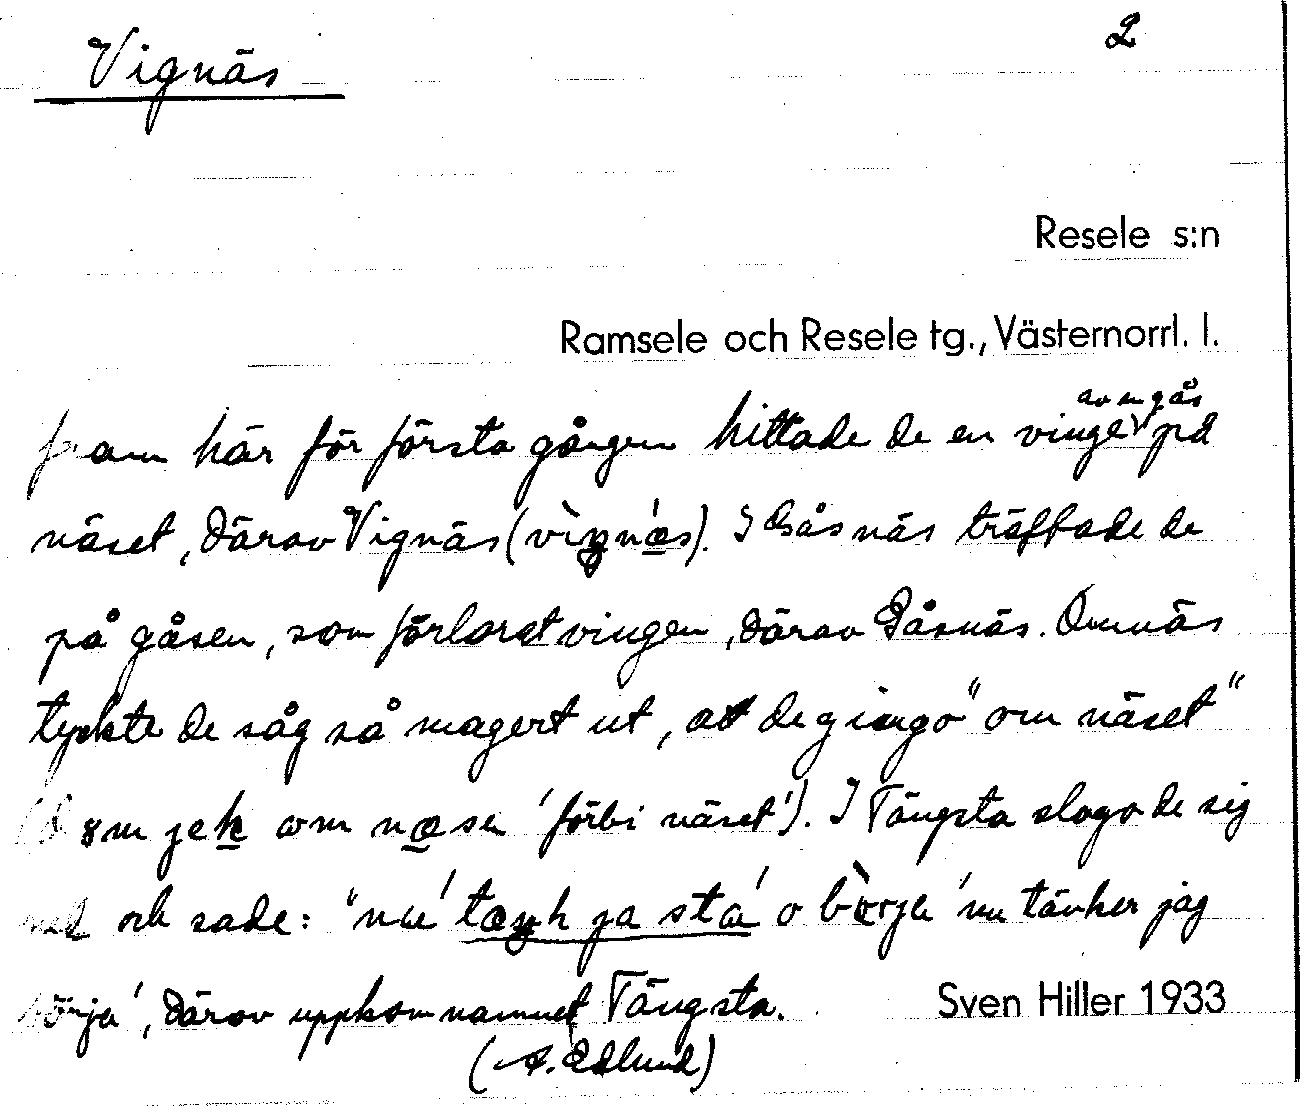 Vignäs
2
Resele s:n
Ramsele och Resele tg., Västernorrl. l.
fram här för första gången hittade de en vinge av en gås på
näset, därav Vignäs (vìŋnæ̀s). I Gåsnäs träffade de
på gåsen, som förlorat vingen, därav Gåsnäs. Omnäs
tyckte de såg så magert ut, att de gingo "om näset"
om næsn 'förbi näset'). I Tängsta slogo de sig
ned och sade: "nu' tæŋk ja sta' o börja' 'nu tänker jag
börja', därav uppkom namnet Tängsta.
Sven Hiller 1933
(A. Edlund)